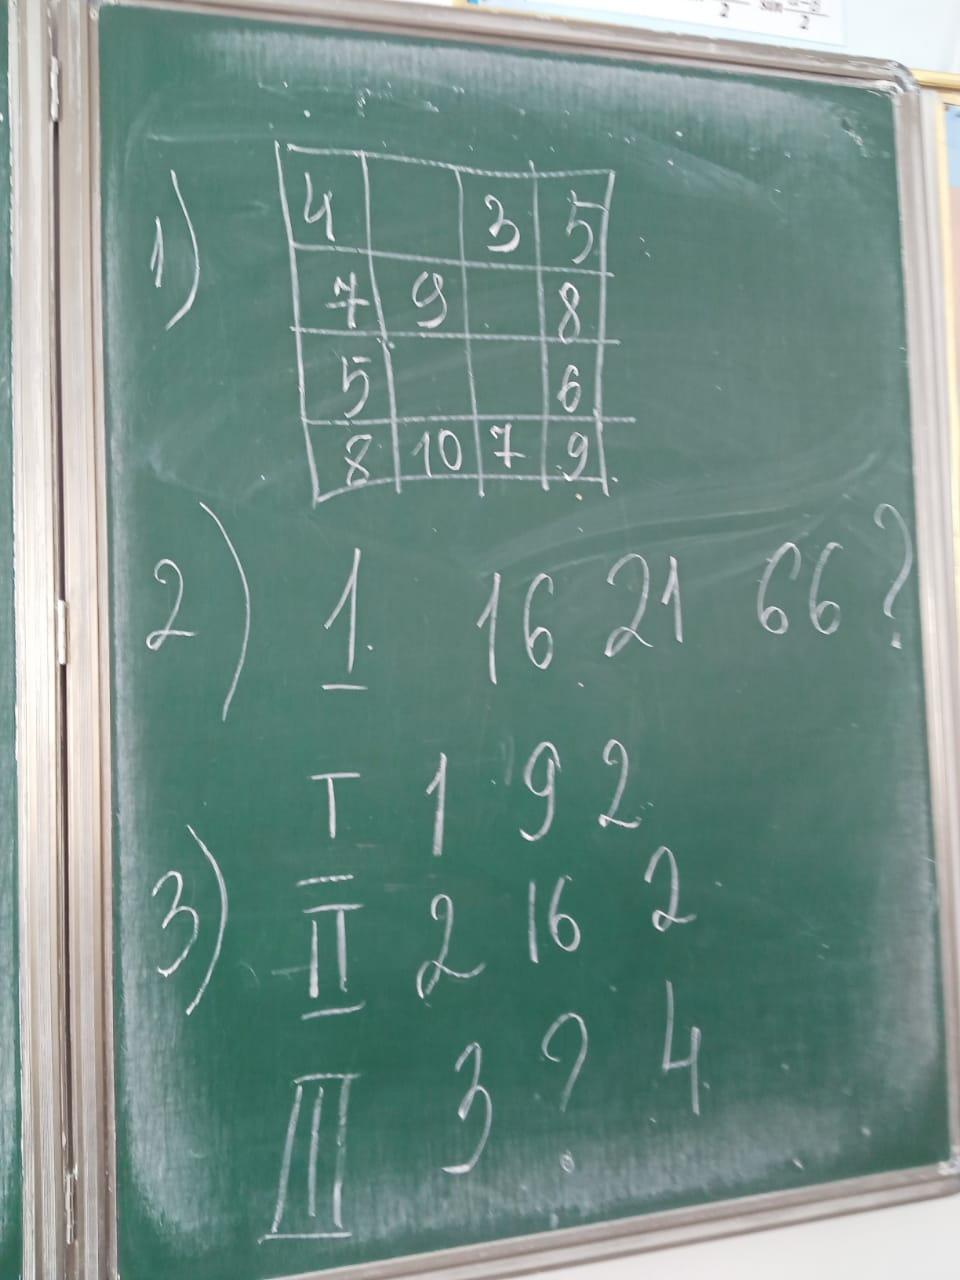 1)
4 3 5
7 9 8
5 6
8 10 7 9
2) 1. 16 21 66 ?
3)
I 1 9 2
II 2 16 2
III 3 ? 4